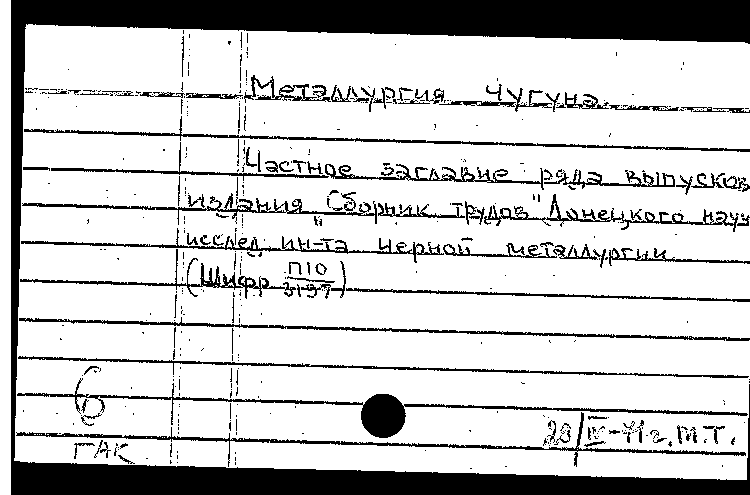 Металлургия чугуна.
Частное заглавие ряда выпусков
издания "Сборник трудов" Донецкого науч
исслед. ин-та черной металлургии
(Шифр П10
3197)
6
ГАК
28/IV-71г. М.Т.